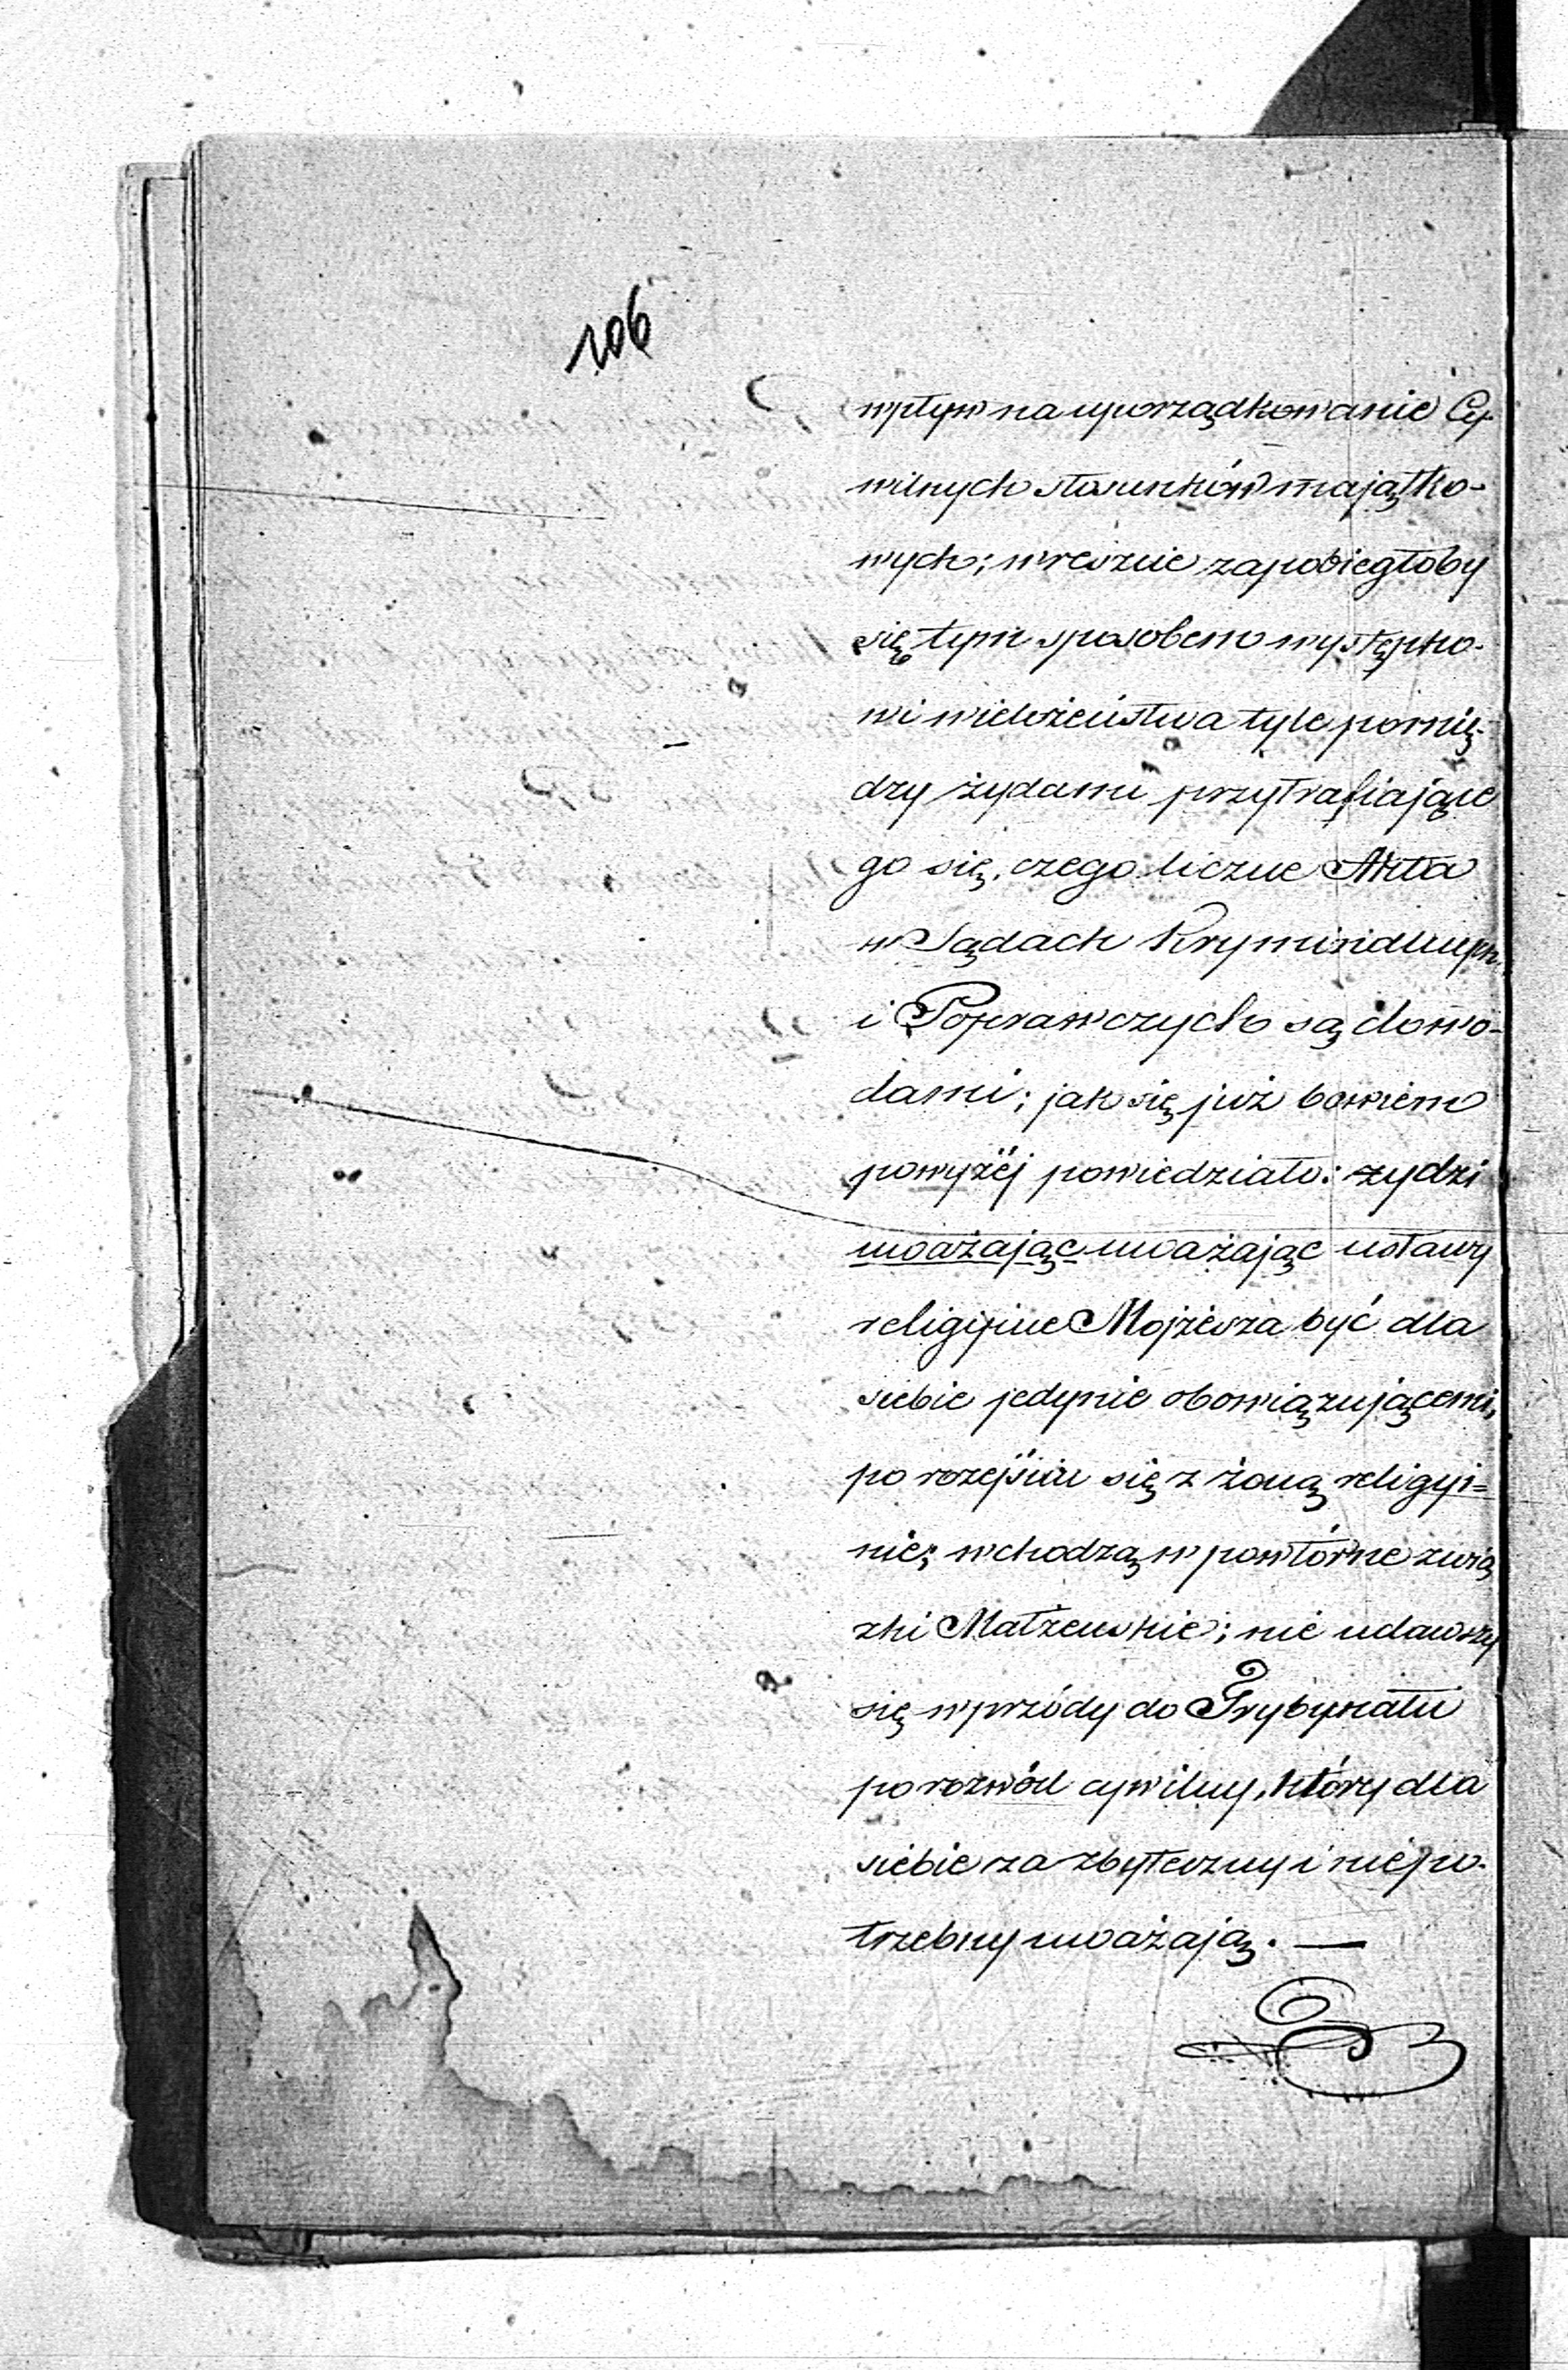 106
wpływ na uporządkowanie Cy-
wilnych stosunków majątko-
wych; wreszcie zapobiegłoby
się tym sposobem występko-
wi wielożeństwa tyle pomię-
dzy żydami przytrafiające
go się, czego liczne Akta
w Sądach Kryminalnych
i Poprawczych są dowo-
dami; jak się już bowiem
powyżéj powiedziało: żydzi
uważając uważając ustawy
religijne Mojżesza być dla
siebie jedynie obowiązującemi,
po rozejściu się z żoną religij=
nie; wchodzą w powtórne zwią
zki Małżeńskie; nie udawszy
się wprzódy do Trybynału
po rozwód cywilny, który dla
siebie za zbyteczny i niepo-
trzebny uważają. —